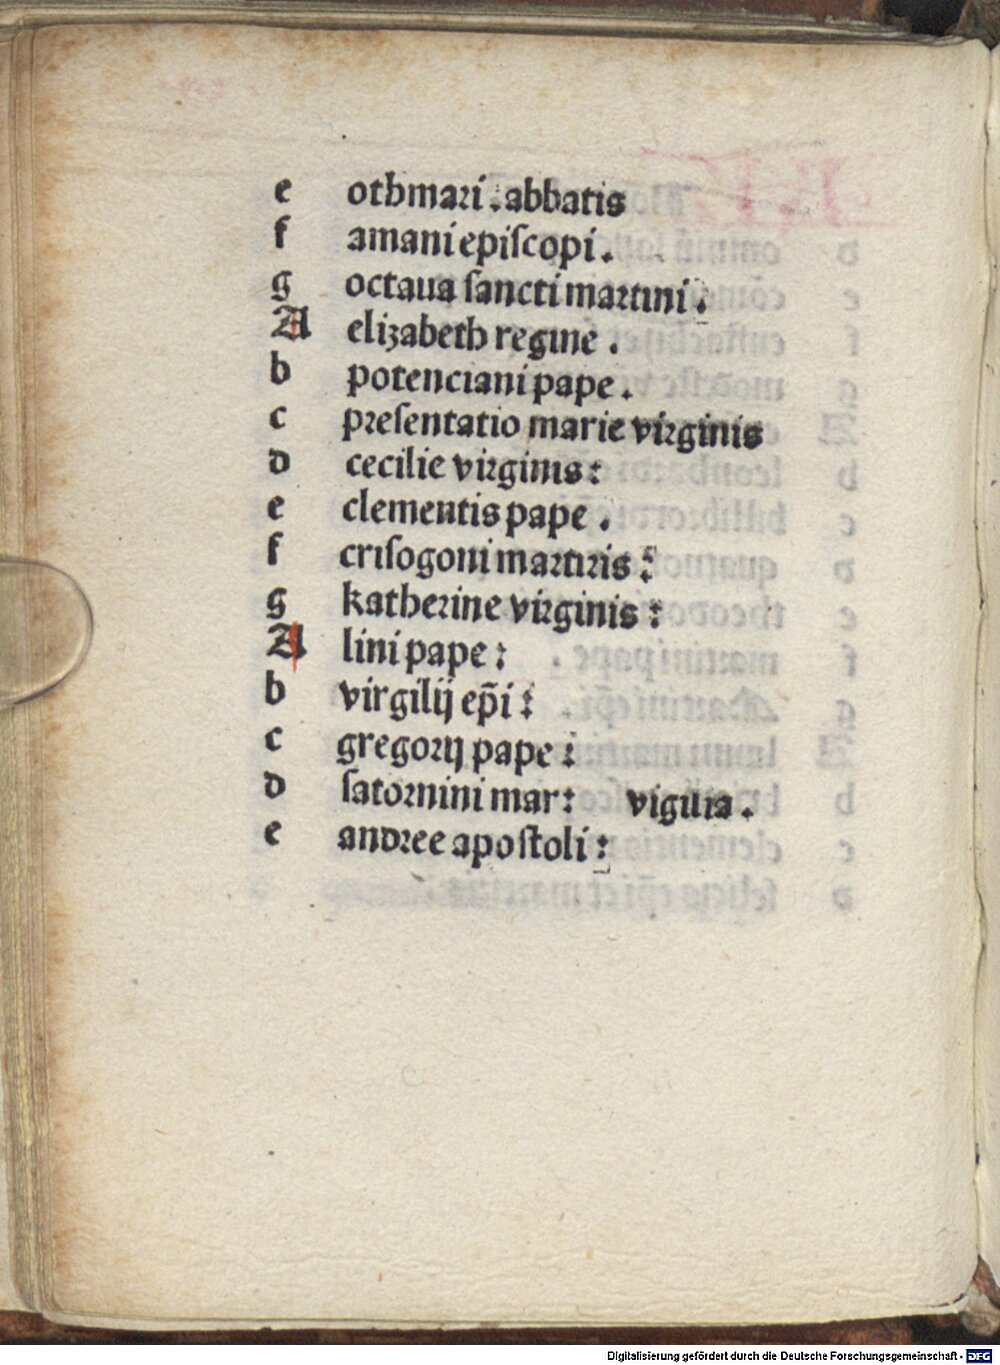 e othmari . abbatis
f amani epiſcopi .
g octaua ſancti martini :
A elizabeth regine .
b potenciani pape .
c preſentatio marie virginis
d cecilie virginis :
e clementis pape .
f criſogoni martiris :
g katherine virginis :
A lini pape :
b virgilij ep̄i :
c gregorij pape :
d ſatornini mar : vigilia .
e andree apoſtoli :
Digitalisierung gefördert durch die Deutsche Forschungsgemeinschaft - DFG